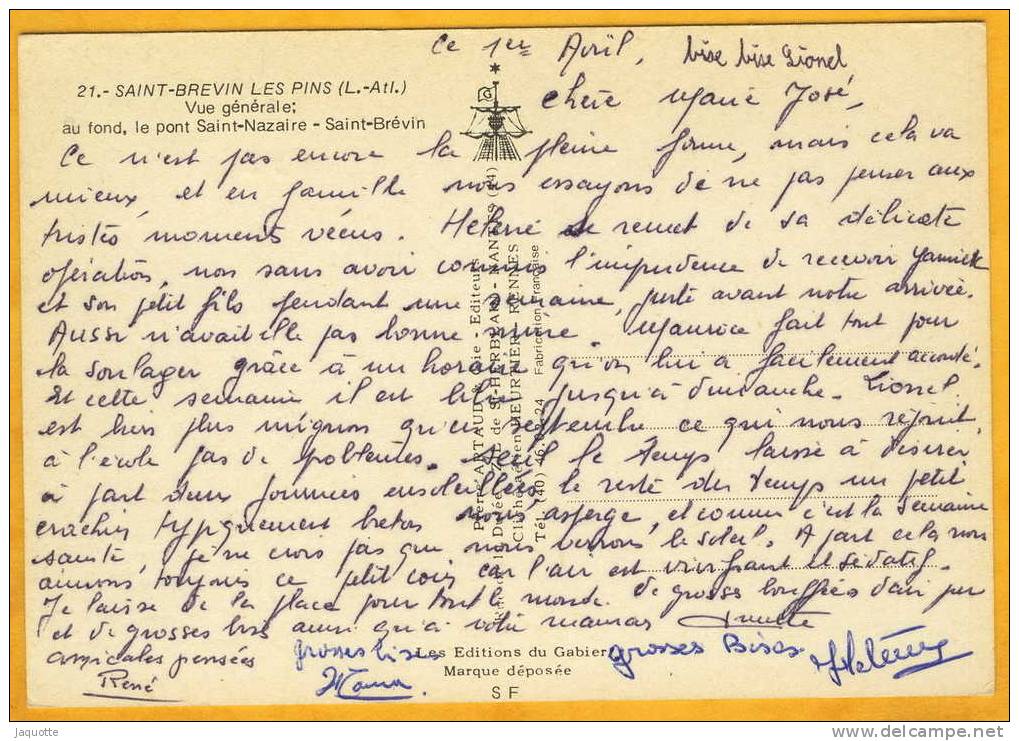 Ce 1er Avril, bise bise Lionel
21.- SAINT-BREVIN LES PINS (L.-Atl.)
Vue générale;
au fond, le pont Saint-Nazaire - Saint-Brévin
Chère Marie José,
Ce n'est pas encore la pleine forme, mais cela va
mieux, et en famille nous essayons de ne pas penser aux
tristes moments vécus. Hélène se remet de sa délicate
opération, non sans avoir commis l'imprudence de recevoir Yannick
et son petit fils pendant une semaine, juste avant notre arrivée.
Aussi n'avait elle pas bonne mine. Maurice fait tout pour
la soulager grâce à un horaire qu'on lui a facilement accordé.
Et cette semaine il est libre jusqu'à dimanche. Lionel
est bien plus mignon qu'en septembre ce qui nous réjouit,
à l'école pas de problèmes. Seul le temps laisse à désirer
à part deux journées ensoleillées le reste du temps un petit
crachin typiquement breton nous asperge, et comme c'est la semaine
sainte, je ne crois pas que nous verrons le soleil. A part cela nous
aimons toujours ce petit coin car l'air est vivifiant et sédatif.
Je laisse de la place pour tout le monde. De grosses bouffées d'air pur
et de grosses bises ainsi qu'à votre maman
amicales pensées
René
grosses bises
grosses Bises
Pierre ARTAUD & Cie - Editeurs
NANTES (44)
HEURNIER - RENNES
Tél. (40) 46
24
Fabrication Française
Les Editions du Gabier
Marque déposée
S F
Jaquotte
http://www.delcampe.net